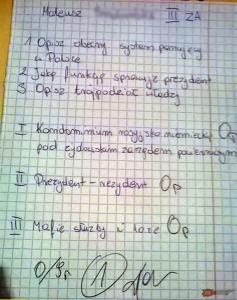 Mateusz III ZA
1 Opisz obecny system panujący
w Polsce
2 Jaką funkcję sprawuje prezydent
3 Opisz trójpodział władzy
I Kondominium rosyjsko niemieckie 0p
pod żydowskim zarządem powierniczym
II Prezydent - rezydent 0p
III Mafie służby i loże 0p
0/3p 1